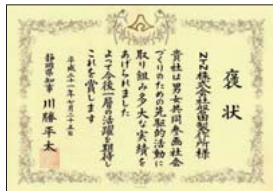 褒状
NTN株式会社磐田製作所様
貴社は男女共同参画社会
づくりのための先駆的活動に
取り組み多大な実績を
あげられました
よって今後一層の活躍を期待し
これを賞します
平成二十一年七月二十五日
静岡県知事 川勝平太